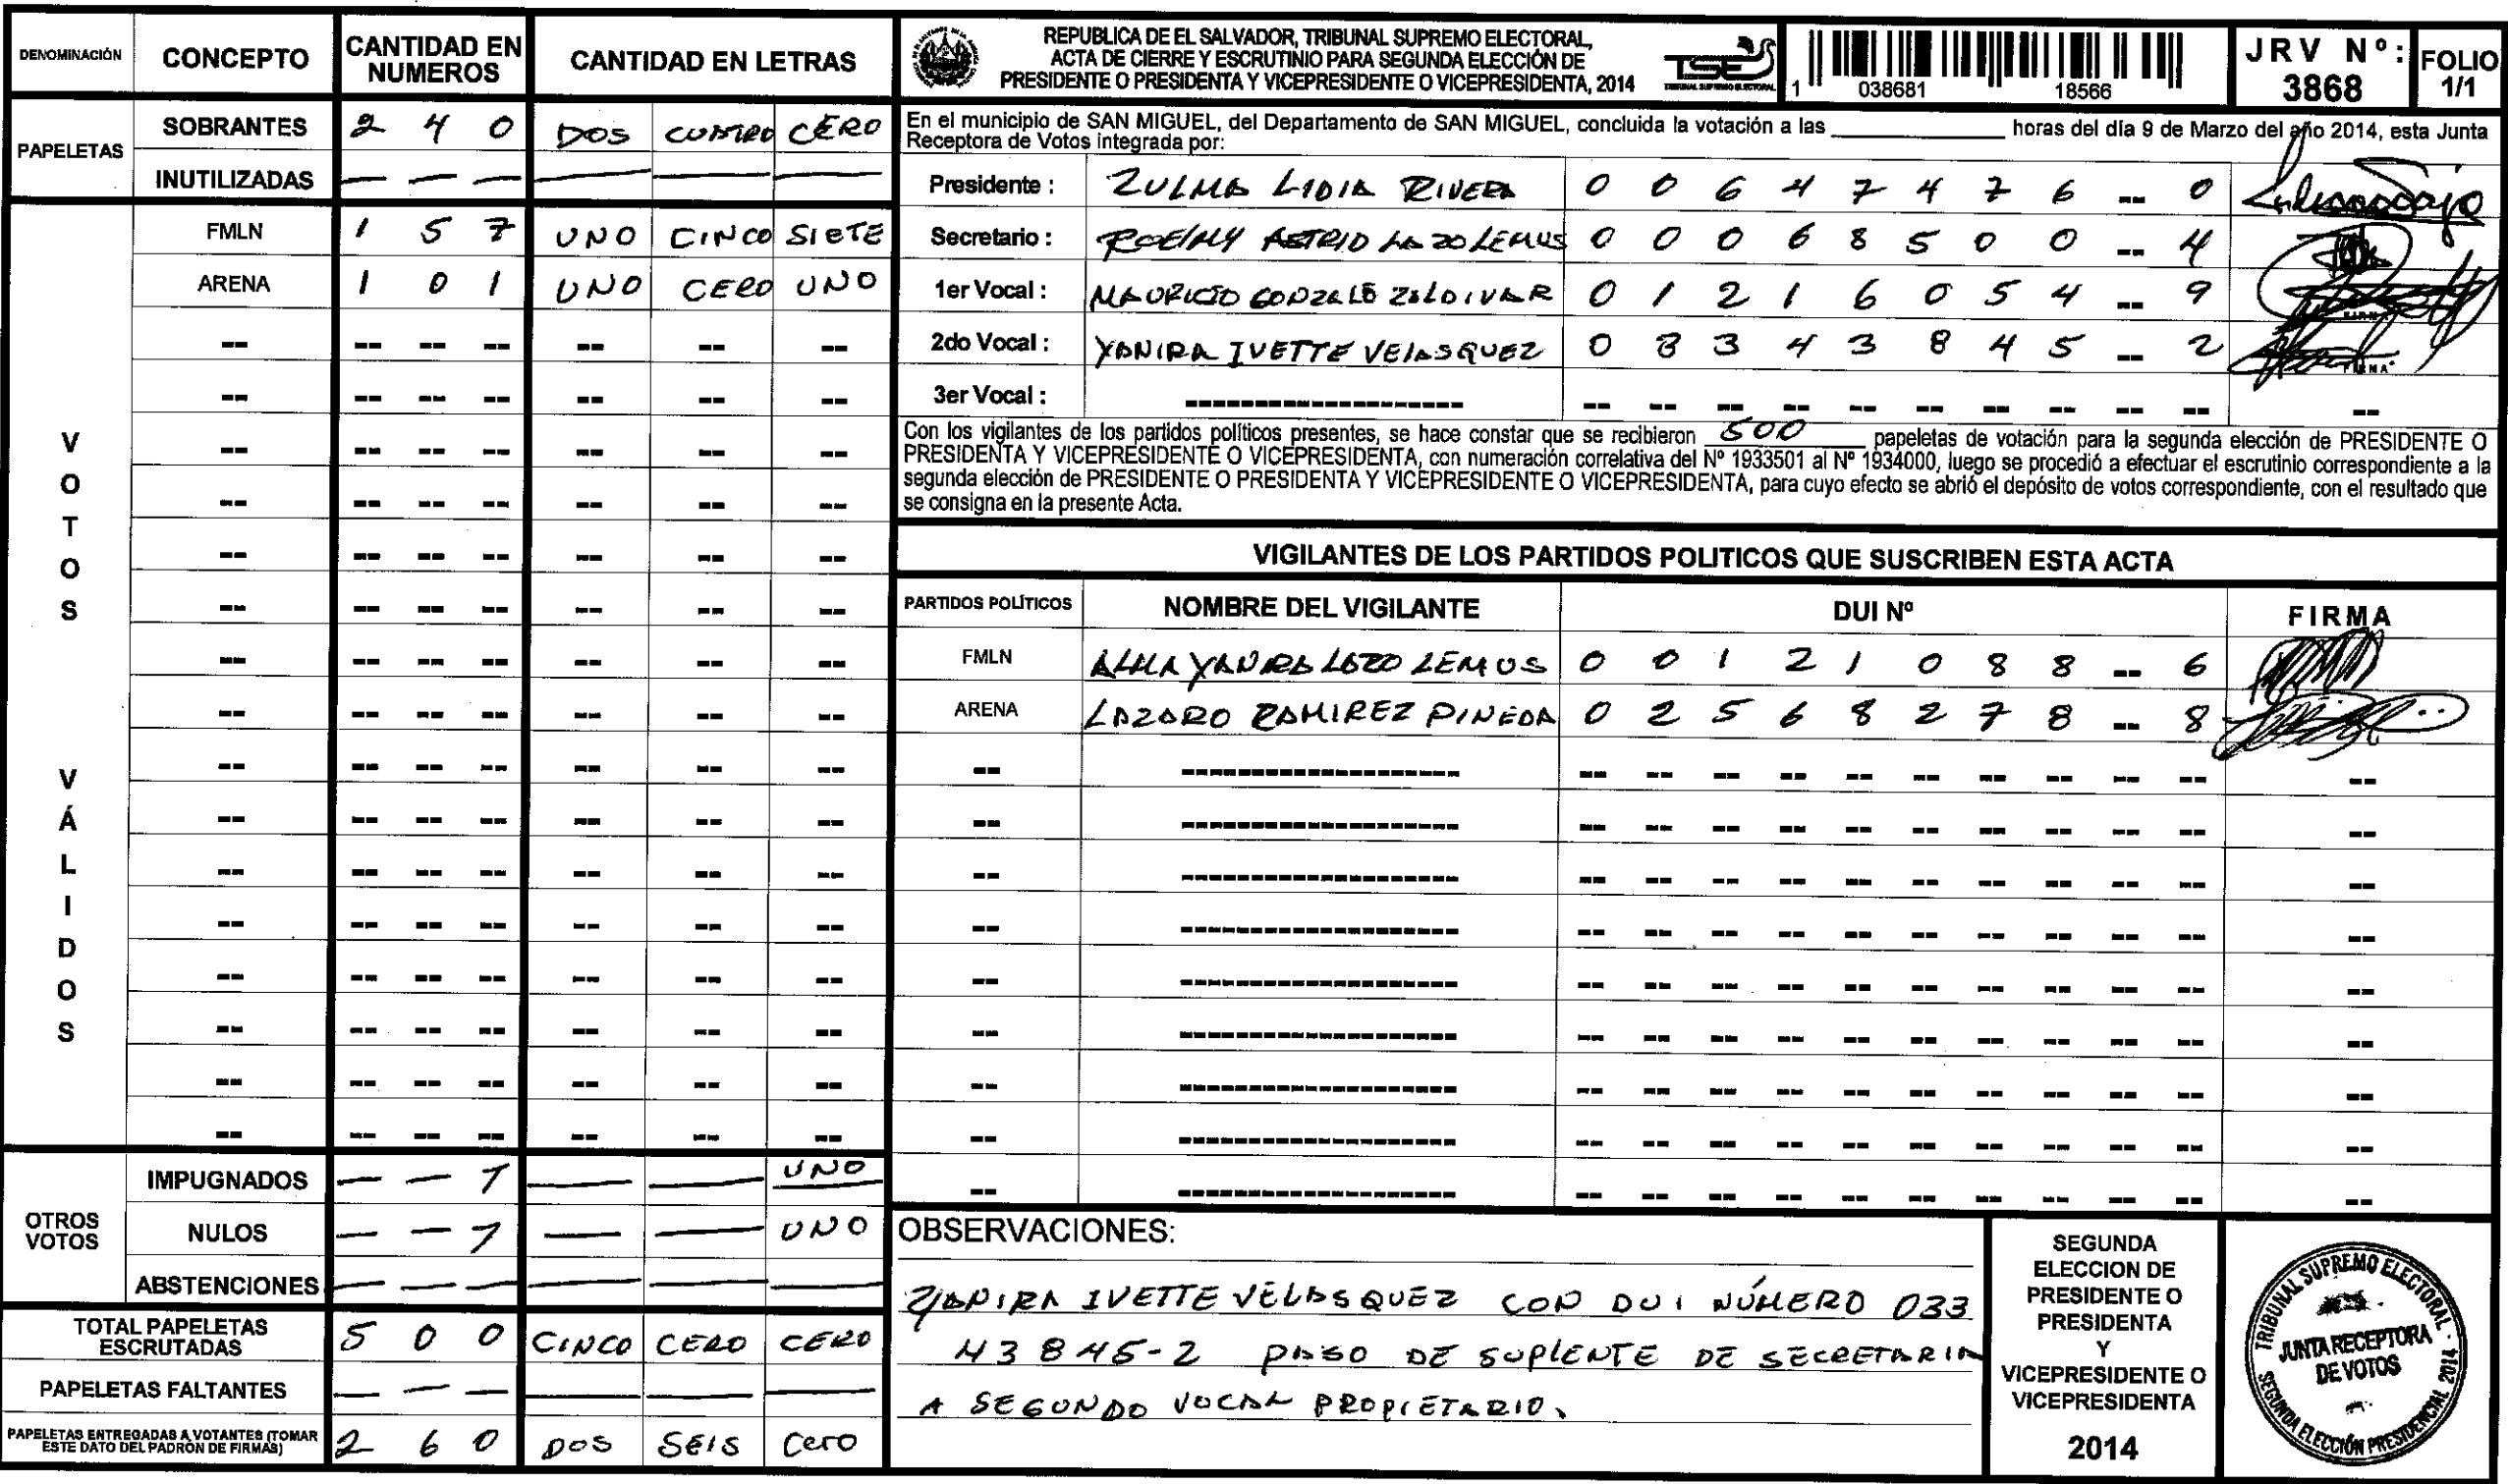 DENOMINACIÓN CONCEPTO CANTIDAD EN NUMEROS CANTIDAD EN LETRAS
PAPELETAS
SOBRANTES 2 4 0 DOS CUATRO CERO
INUTILIZADAS — — — — — —
VOTOS VÁLIDOS
FMLN 1 5 7 UNO CINCO SIETE
ARENA 1 0 1 UNO CERO UNO
OTROS VOTOS
IMPUGNADOS — — 1 — — UNO
NULOS — — 1 — — UNO
ABSTENCIONES — — — — — —
TOTAL PAPELETAS ESCRUTADAS 5 0 0 CINCO CERO CERO
PAPELETAS FALTANTES — — — — — —
PAPELETAS ENTREGADAS A VOTANTES (TOMAR ESTE DATO DEL PADRÓN DE FIRMAS) 2 6 0 DOS SEIS Cero
REPUBLICA DE EL SALVADOR, TRIBUNAL SUPREMO ELECTORAL,
ACTA DE CIERRE Y ESCRUTINIO PARA SEGUNDA ELECCIÓN DE
PRESIDENTE O PRESIDENTA Y VICEPRESIDENTE O VICEPRESIDENTA, 2014
TSE
TRIBUNAL SUPREMO ELECTORAL
1 038681 18566
JRV Nº: 3868
FOLIO 1/1
En el municipio de SAN MIGUEL, del Departamento de SAN MIGUEL, concluida la votación a las ____________ horas del día 9 de Marzo del año 2014, esta Junta
Receptora de Votos integrada por:
Presidente : ZULMA LIDIA RIVERA 0 0 6 4 7 4 7 6 -- 0
Secretario : ASTRID LAZO LEMUS 0 0 0 6 8 5 0 0 -- 4
1er Vocal : MAURICIO GONZALO ZALDIVAR 0 1 2 1 6 0 5 4 -- 9
2do Vocal : YANIRA IVETTE VELASQUEZ 0 3 3 4 3 8 4 5 -- 2
3er Vocal : ------------------
Con los vigilantes de los partidos políticos presentes, se hace constar que se recibieron 500 papeletas de votación para la segunda elección de PRESIDENTE O
PRESIDENTA Y VICEPRESIDENTE O VICEPRESIDENTA, con numeración correlativa del Nº 1933501 al Nº 1934000, luego se procedió a efectuar el escrutinio correspondiente a la
segunda elección de PRESIDENTE O PRESIDENTA Y VICEPRESIDENTE O VICEPRESIDENTA, para cuyo efecto se abrió el depósito de votos correspondiente, con el resultado que
se consigna en la presente Acta.
VIGILANTES DE LOS PARTIDOS POLITICOS QUE SUSCRIBEN ESTA ACTA
PARTIDOS POLÍTICOS NOMBRE DEL VIGILANTE DUI Nº FIRMA
FMLN ALMA YANIRA LAZO LEMUS 0 0 1 2 1 0 8 8 -- 6
ARENA LAZARO RAMIREZ PINEDA 0 2 5 6 8 2 7 8 -- 8
OBSERVACIONES:
YANIRA IVETTE VELASQUEZ CON DUI NÚMERO 033
43845-2 PASO DE SUPLENTE DE SECRETARIA
A SEGUNDO VOCAL PROPIETARIO.
SEGUNDA
ELECCION DE
PRESIDENTE O
PRESIDENTA
Y
VICEPRESIDENTE O
VICEPRESIDENTA
2014
TRIBUNAL SUPREMO ELECTORAL -
JUNTA RECEPTORA
DE VOTOS
SEGUNDA ELECCIÓN PRESIDENCIAL 2014